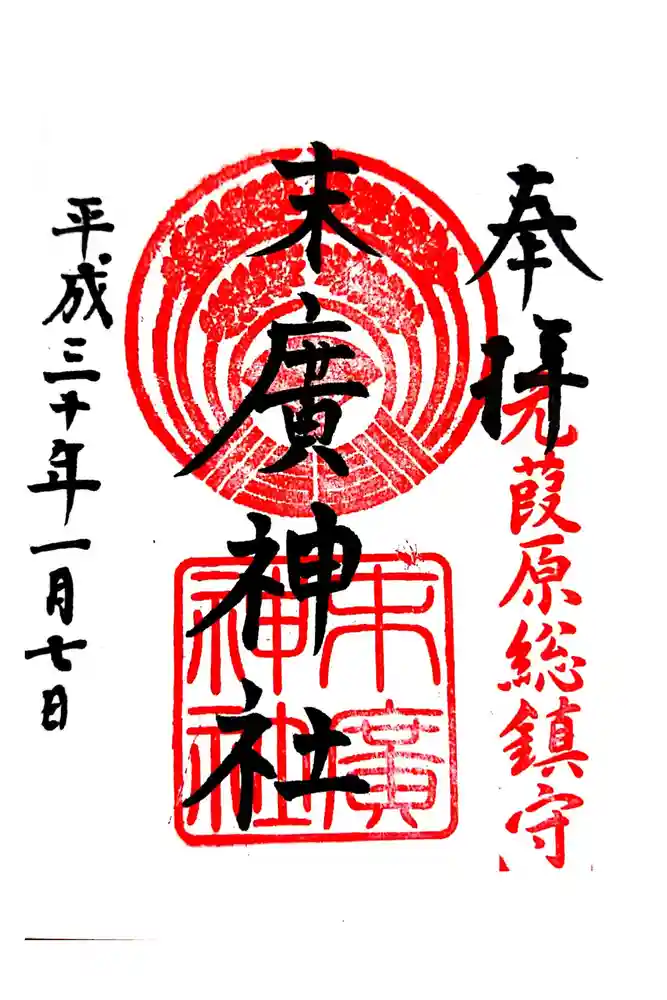 奉拝
元葭原総鎮守
末廣神社
末廣神社
平成三十年一月七日